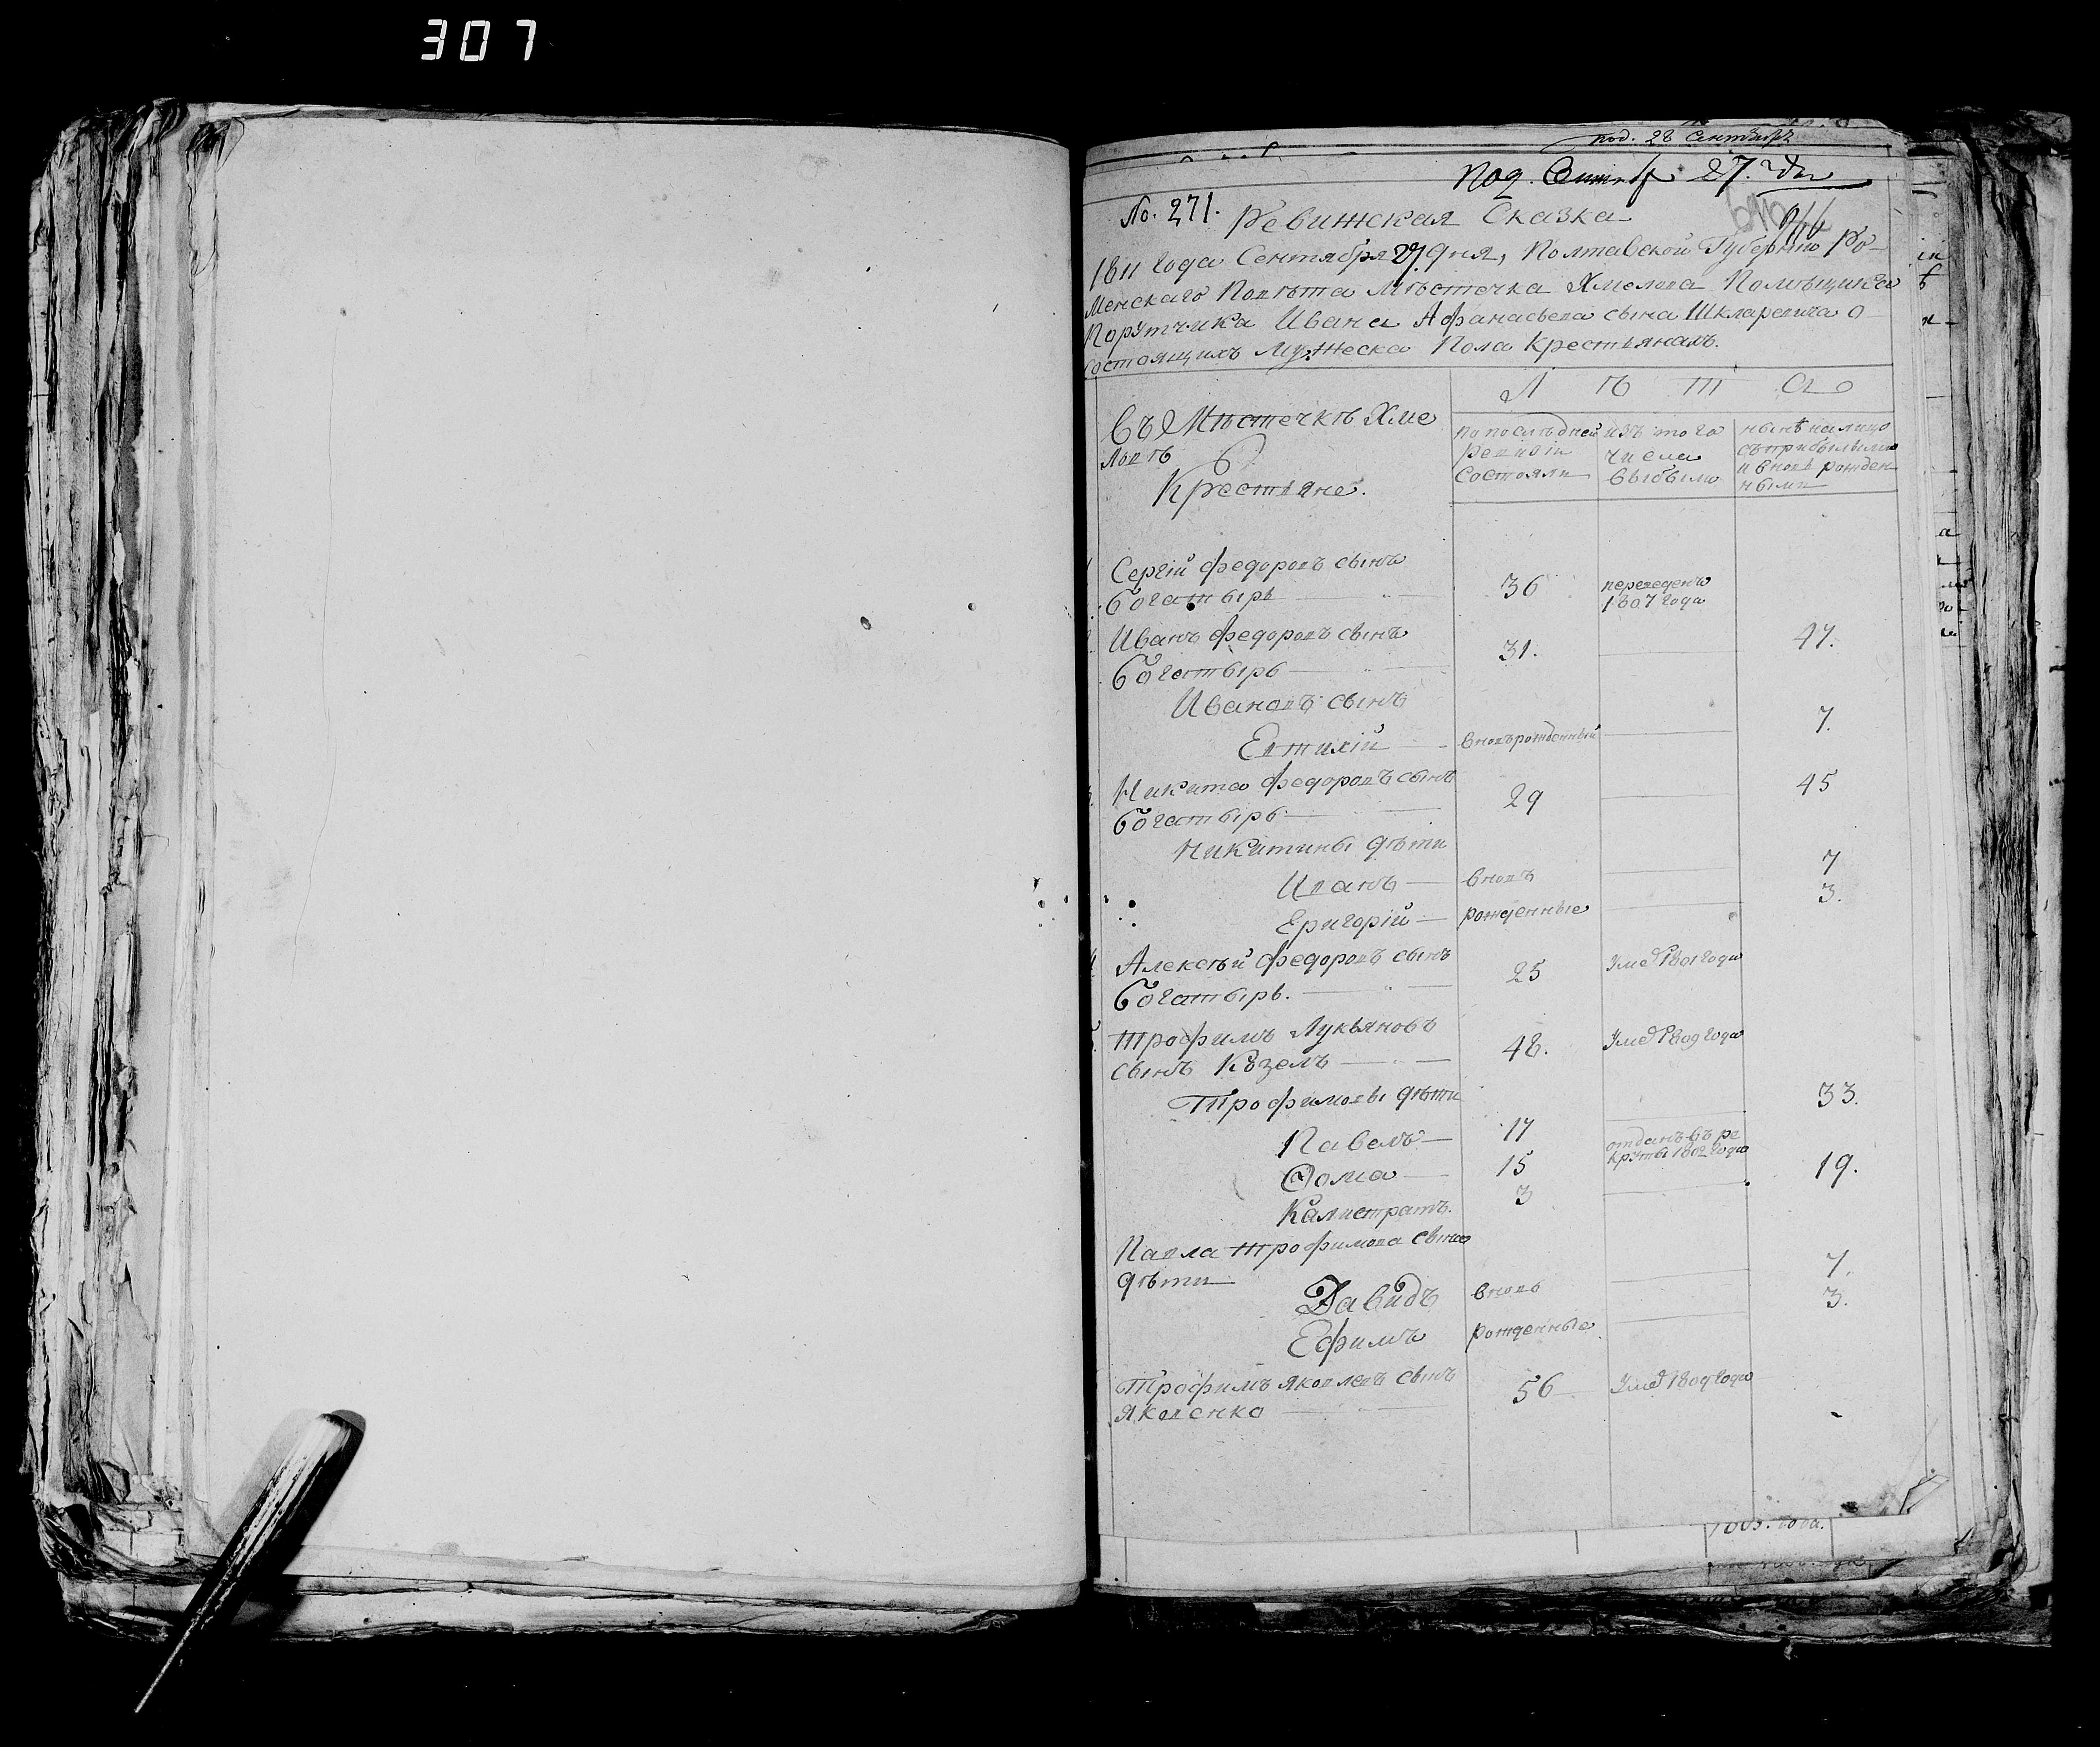 307
под. 28 Сентября
под. Сентябр 27. дня
No. 271. Ревижская Сказка
1811 года Сентября 27 дня, Полтавской Губернии Ро-
менскаго Повѣта Мѣстечка Хмелова Помѣщика
Порутчика Ивана Афанасьева сына Шкларевича о
состоящихъ Мужеска Пола Крестьянахъ.
Л ѣ т а
Въ Мѣстечкѣ Хме
ловѣ
Крестьяне.
по послѣдней
ревизіи
состояли
изъ того
числа
выбыло
нынѣ налицо
съ прибылыми
и вновь рожден
ными
Сергій Федоровъ сынъ
Богатырь 36 переведенъ
1807 года
Иванъ Федоровъ сынъ 47.
Богатырь 31.
Ивановъ сынъ
Евтихій вновьрожденный 7.
Никита Федоровъ сынъ 45
Богатырь 29
Никитины дѣти
Иванъ вновь 7
Григорій рожденные 3.
Алексѣй Федоровъ сынъ
Богатырь. 25 умре 1801 года
Трофимъ Лукьяновъ
сынъ Козелъ 48. умре 1809 года
Трофимовы дѣти 33.
Павелъ 17
Фома 15 отданъ въ ре
круты 1802 года
Калистратъ. 3 19.
Павла Трофимова сына
дѣти
Давидъ вновь 7.
Ефимъ рожденные 3.
Трофимъ Яковлевъ сынъ
Яковенко 56 умре 1809 года
года.